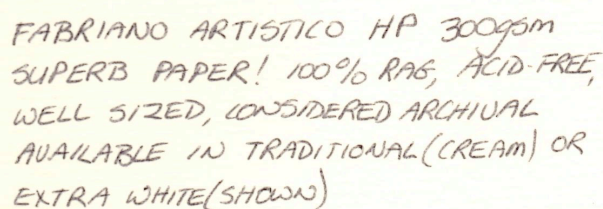 FABRIANO ARTISTICO HP 300gsm
SUPERB PAPER! 100% RAG, ACID-FREE,
WELL SIZED, CONSIDERED ARCHIVAL
AVAILABLE IN TRADITIONAL (CREAM) OR
EXTRA WHITE (SHOWN)